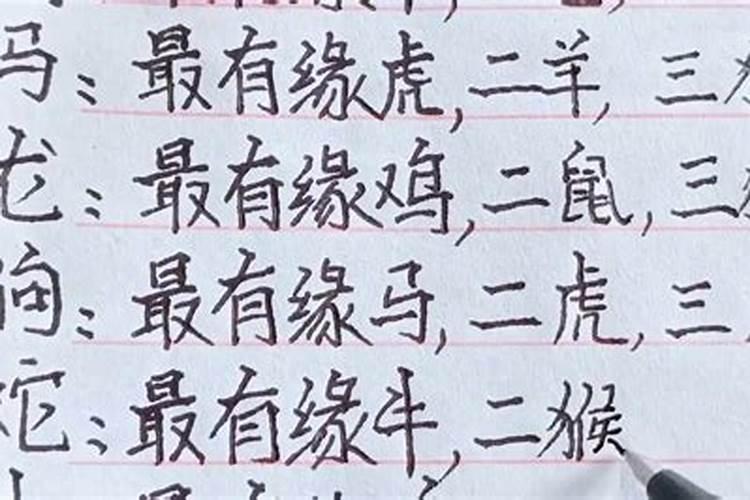 马：最有缘虎，二羊，三
龙：最有缘鸡，二鼠，三
狗：最有缘马，二虎，三
蛇：最有缘牛，二猴